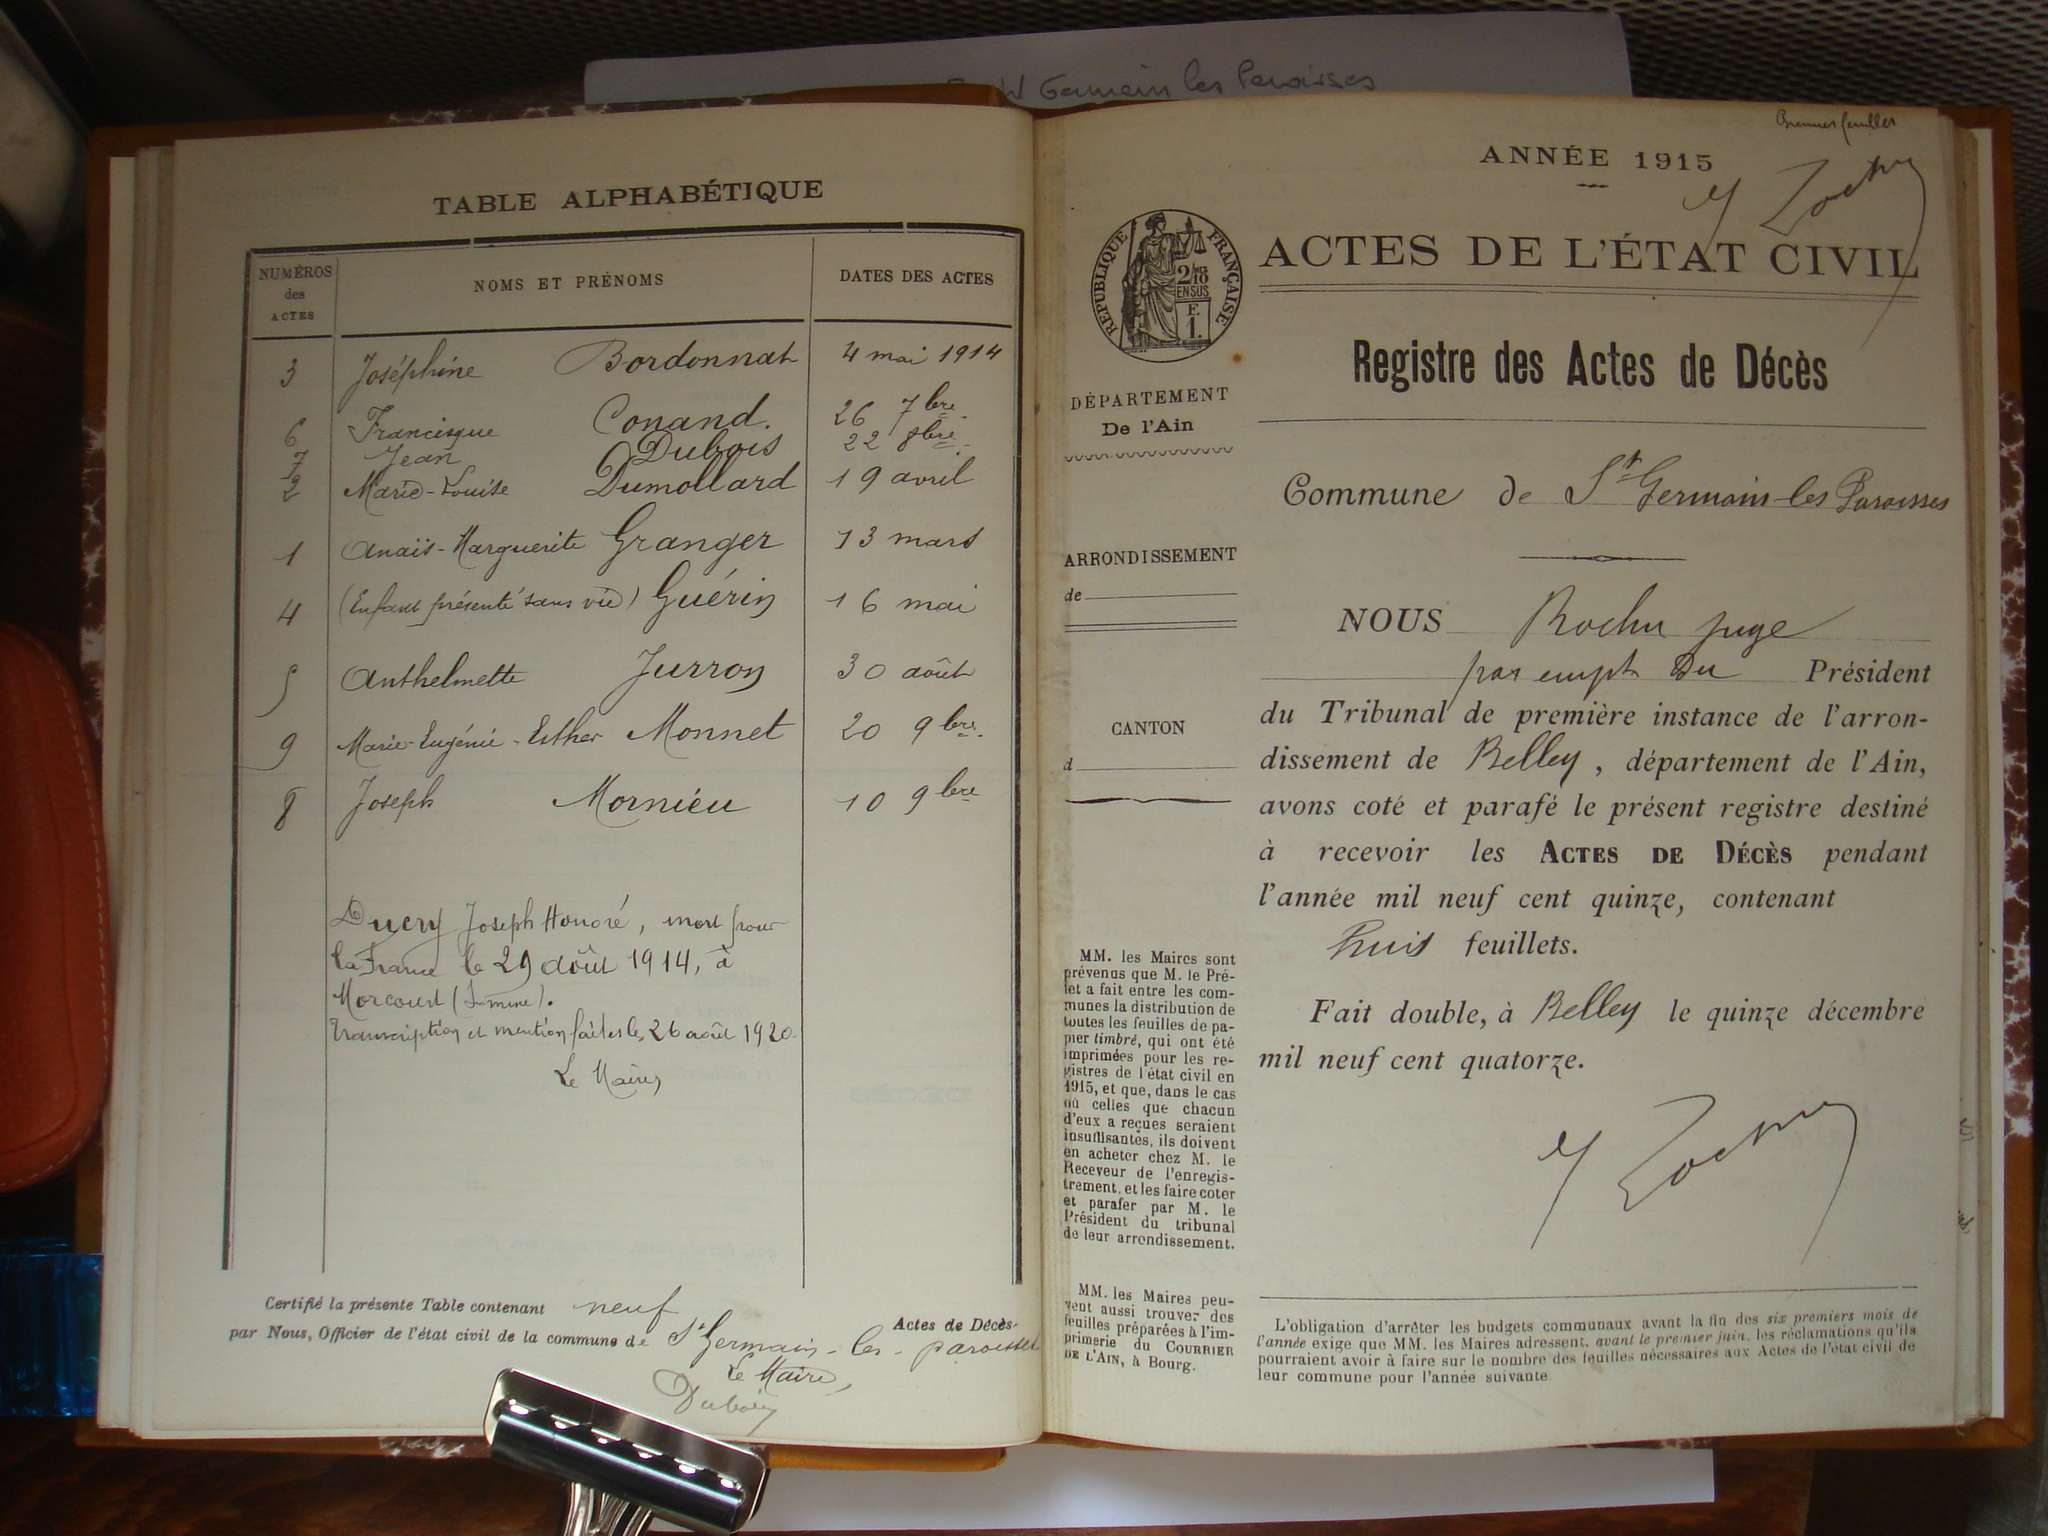 St Germain les Paroisses
TABLE ALPHABÉTIQUE
NUMÉROS des ACTES
NOMS ET PRÉNOMS
DATES DES ACTES
3 Joséphine Bordonnat 4 mai 1914
6 Francisque Conand. 26 7bre.
7 Jean Dubois 22 8bre.
2 Marie-Louise Dumollard 19 avril
1 Anaïs-Marguerite Granger 13 mars
4 (Enfant présenté sans vie) Guérin 16 mai
5 Anthelmette Jurron 30 août
9 Marie-Eugénie-Esther Monnet 20 9bre.
8 Joseph Mornieu 10 9bre
Ducry Joseph Honoré, mort pour
la France le 29 août 1914, à
Morcourt (Somme).
Transcription et mention faites le 26 août 1920.
Le Maire,
Certifié la présente Table contenant neuf Actes de Décès
par Nous, Officier de l'état civil de la commune de St Germain-les-paroisses
Le Maire,
Dubois
Premier feuillet
ANNÉE 1915
RÉPUBLIQUE FRANÇAISE
2/10 EN SUS
E.
1.
ACTES DE L'ÉTAT CIVIL
Registre des Actes de Décès
DÉPARTEMENT
De l'Ain
Commune de St Germain-les Paroisses
ARRONDISSEMENT
de
CANTON
d
NOUS Rochu juge
par empt Du Président
du Tribunal de première instance de l'arron-
dissement de Belley, département de l'Ain,
avons coté et parafé le présent registre destiné
à recevoir les ACTES DE DÉCÈS pendant
l'année mil neuf cent quinze, contenant
huit feuillets.
Fait double, à Belley le quinze décembre
mil neuf cent quatorze.
MM. les Maires sont
prévenus que M. le Pré-
fet a fait entre les com-
munes la distribution de
toutes les feuilles de pa-
pier timbré, qui ont été
imprimées pour les re-
gistres de l'état civil en
1915, et que, dans le cas
où celles que chacun
d'eux a reçues seraient
insuffisantes, ils doivent
en acheter chez M. le
Receveur de l'enregis-
trement, et les faire coter
et parafer par M. le
Président du tribunal
de leur arrondissement.
MM. les Maires peu-
vent aussi trouver des
feuilles préparées à l'im-
primerie du COURRIER
DE L'AIN, à Bourg.
L'obligation d'arrêter les budgets communaux avant la fin des six premiers mois de
l'année exige que MM. les Maires adressent, avant le premier juin, les réclamations qu'ils
pourraient avoir à faire sur le nombre des feuilles nécessaires aux Actes de l'état civil de
leur commune pour l'année suivante